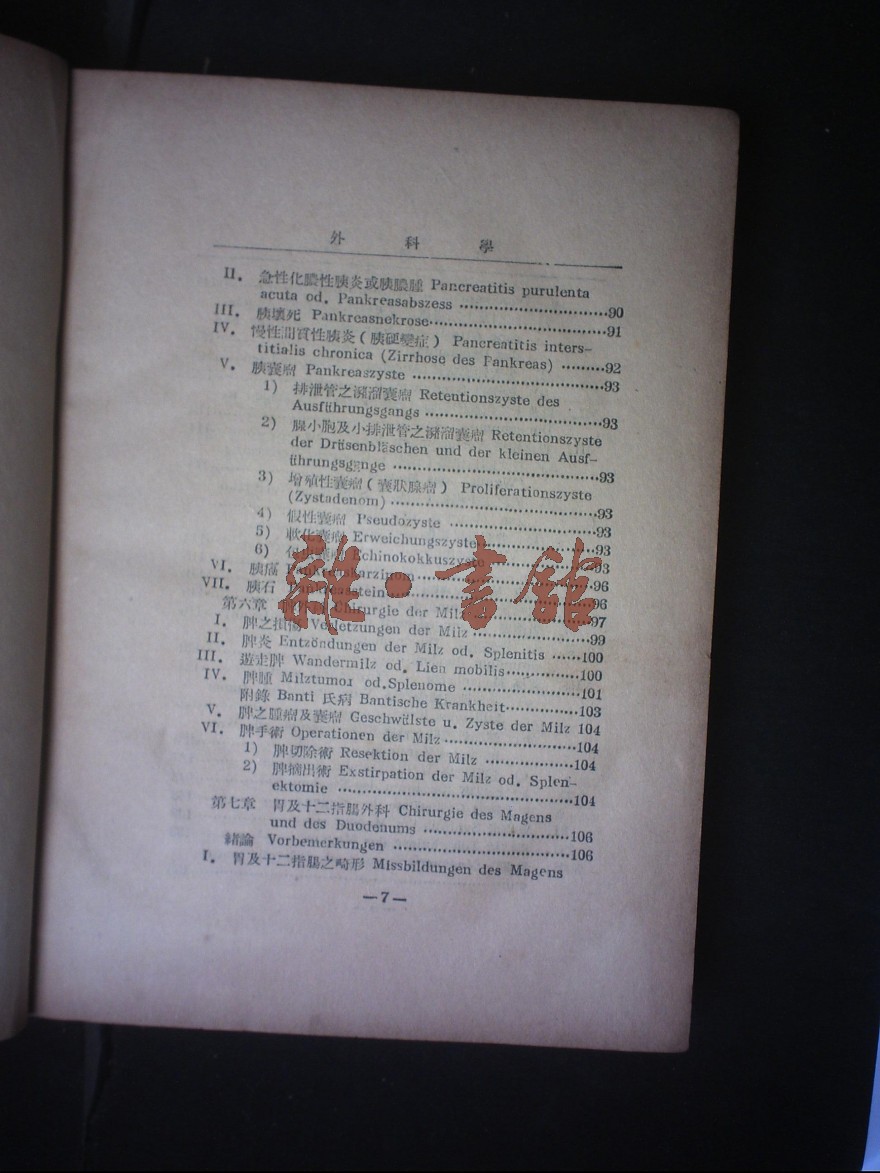 外 科 學
II. 急性化膿性胰炎或胰膿腫 Pancreatitis purulenta
acuta od. Pankreasabszess ……90
III. 胰壞死 Pankreasnekrose……91
IV. 慢性間質性胰炎（胰硬變症） Pancreatitis inters-
titialis chronica (Zirrhose des Pankreas) ……92
V. 胰囊瘤 Pankreaszyste ……93
1) 排泄管之瀦溜囊瘤 Retentionszyste des
Ausführungsgangs ……93
2) 腺小胞及小排泄管之瀦溜囊瘤 Retentionszyste
der Drüsenbläschen und der kleinen Ausf-
ührungsgänge ……93
3) 增殖性囊瘤（囊狀腺瘤） Proliferationszyste
(Zystadenom) ……93
4) 假性囊瘤 Pseudozyste ……93
5) 軟化囊瘤 Erweichungszyste ……93
6) Echinokokkuszyste ……93
VI. 胰癌 Pankreaskarzinom ……96
VII. 胰石 Pankreasstein ……96
第六章 Chirurgie der Milz ……97
I. 脾之損傷 Verletzungen der Milz ……99
II. 脾炎 Entzöndungen der Milz od. Splenitis ……100
III. 遊走脾 Wandermilz od. Lien mobilis……100
IV. 脾腫 Milztumor od.Splenome ……101
附錄 Banti 氏病 Bantische Krankheit……103
V. 脾之腫瘤及囊瘤 Geschwülste u. Zyste der Milz 104
VI. 脾手術 Operationen der Milz ……104
1) 脾切除術 Resektion der Milz ……104
2) 脾摘出術 Exstirpation der Milz od. Splen-
ektomie ……104
第七章 胃及十二指腸外科 Chirurgie des Magens
und des Duodenums ……106
緒論 Vorbemerkungen ……106
I. 胃及十二指腸之畸形 Missbildungen des Magens
—7—
雜·書館